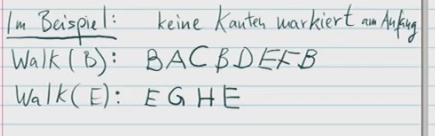 Im Beispiel: keine Kanten markiert am Anfang
Walk(B): BACBDEFB
Walk(E): EGHE